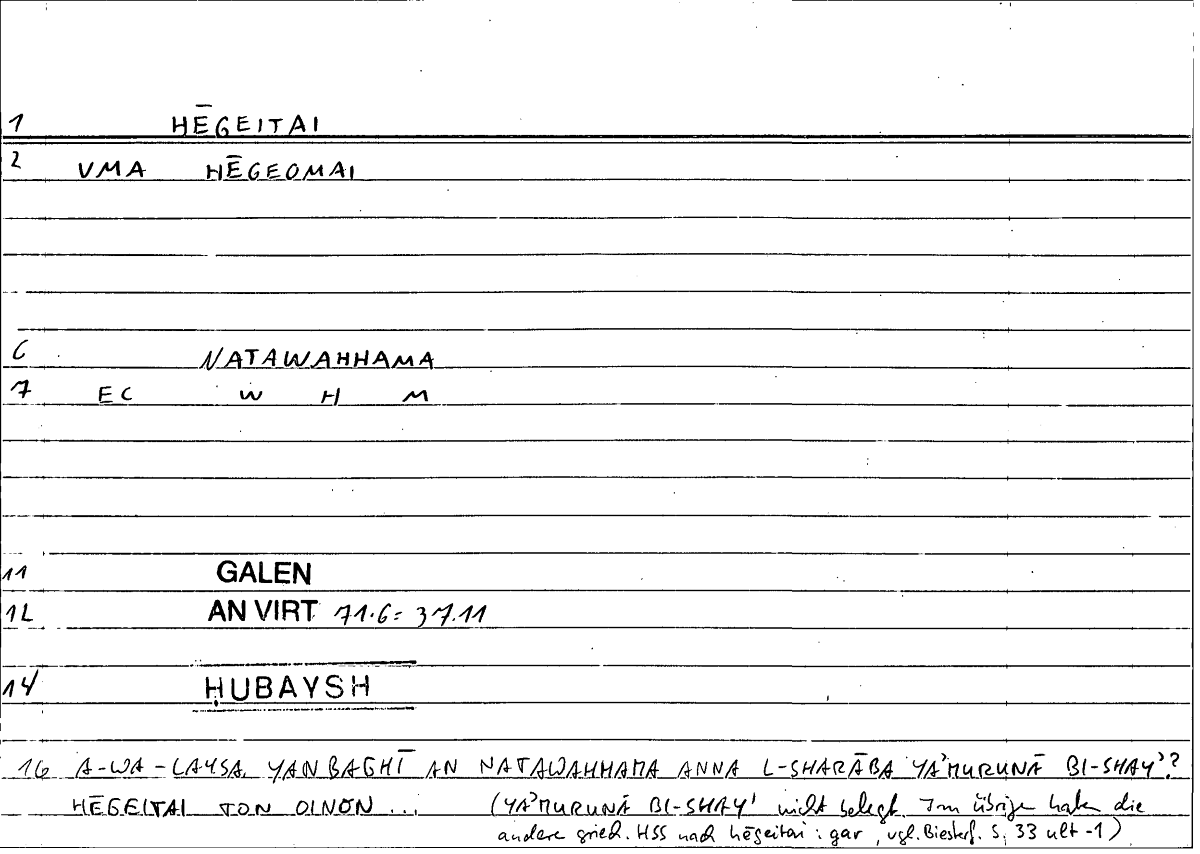 1 HĒGEITAI
2 VMA HĒGEOMAI
6 NATAWAHHAMA
7 EC W H M
11 GALEN
12 AN VIRT 71.6 = 37.11
14 ḤUBAYSH
16 A-WA-LAYSA YANBAGHĪ AN NATAWAHHAMA ANNA L-SHARĀBA YAʾMURUNĀ BI-SHAYʾ?
HĒGEITAI TON OINON ... (YAʾMURUNĀ BI-SHAYʾ nicht belegt. Im übrigen haben die
andere griech. HSS nach hēgeitai: gar, vgl. Biesterf. S. 33 ult -1)